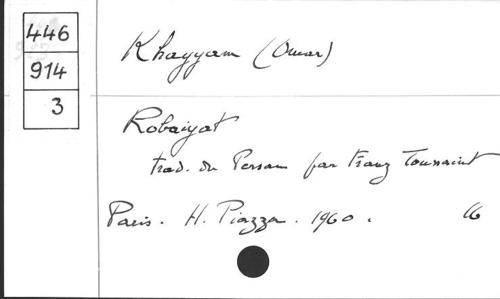 446
914
3
Khayyam (Omar)
Robaiyat
trad. du Persan par Franz Toussaint
Paris. H. Piazza. 1960. 16